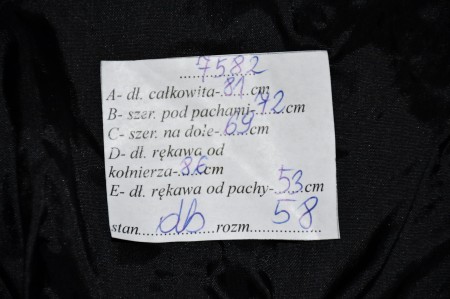 7582
A- dł. całkowita-81cm
B- szer. pod pachami-72cm
C- szer. na dole-69cm
D- dł. rękawa od
kołnierza-86cm
E- dł. rękawa od pachy-53cm
stan......db......rozm......58......